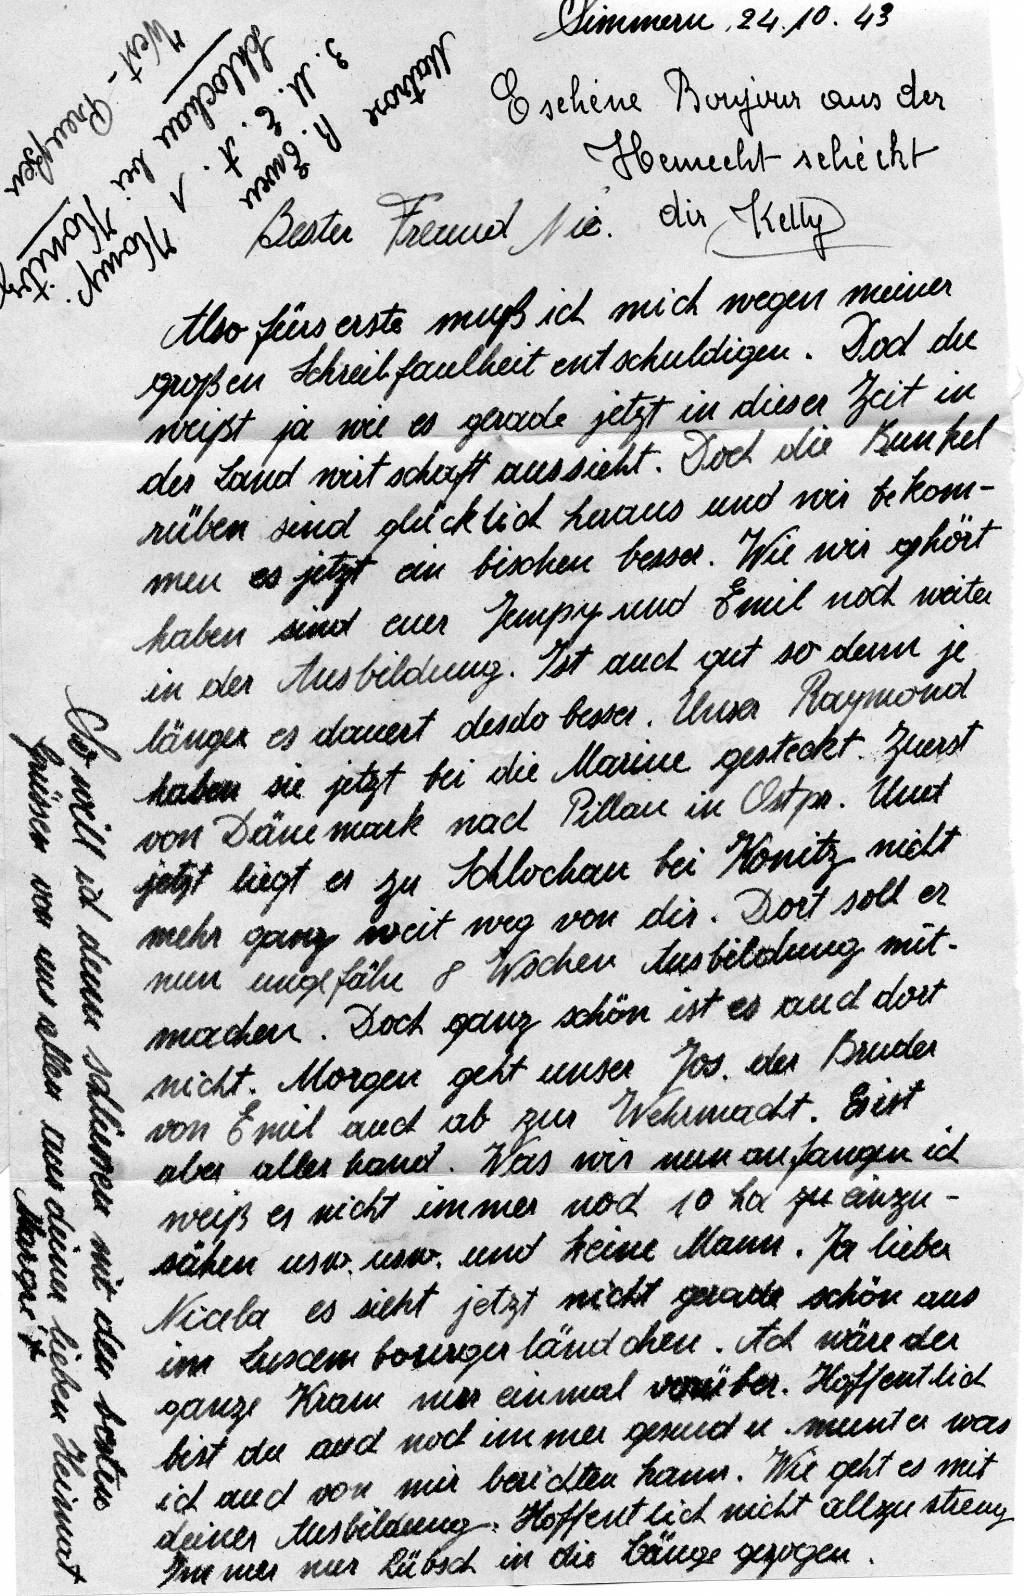 Simmern, 24.10.43
Eschéne Boujour aus der
Hemecht schéckt
dir Kelly
Matrose
R. Ewen
3. M. E. A.
1 Komp.
Schlochau bei Konitz
West-Preußen
Bester Freund Nic.
Also fürs erste muß ich mich wegen meiner
großen Schreibfaulheit entschuldigen. Doch du
weißt ja wie es gerade jetzt in dieser Zeit in
der Landwirtschaft aussieht. Doch die Runkel
rüben sind glücklich heraus und wir bekom-
men es jetzt ein bischen besser. Wie wir gehört
haben sind euer Jempy und Emil noch weiter
in der Ausbildung. Ist auch gut so denn je
länger es dauert desdo besser. Unser Raymond
haben sie jetzt bei die Marine gesteckt. Zuerst
von Dänemark nach Pillau in Ostpr. Und
jetzt liegt er zu Schlochau bei Konitz nicht
mehr ganz weit weg von dir. Dort soll er
nun ungefähr 8 Wochen Ausbildung mit-
machen. Doch ganz schön ist es auch dort
nicht. Morgen geht unser Jos. der Bruder
von Emil auch ab zur Wehrmacht. Es ist
aber allerhand. Was wir nun anfangen ich
weiß es nicht immer noch 10 ha zu einzu-
sähen usw. usw. und keine Mann. Ja lieber
Nicela es sieht jetzt nicht gerade schön aus
im Luxembourgerländchen. Ach wäre der
ganze Kram nur einmal vorüber. Hoffentlich
bist du auch noch immer gesund u. munter was
ich auch von mir berichten kann. Wie geht es mit
deiner Ausbildung. Hoffentlich nicht allzu streng
Immer nur hübsch in die Länge gezogen.
So will ich denn schliessen mit den besten
Grüssen von uns allen aus deiner lieben Heimat
Margrit